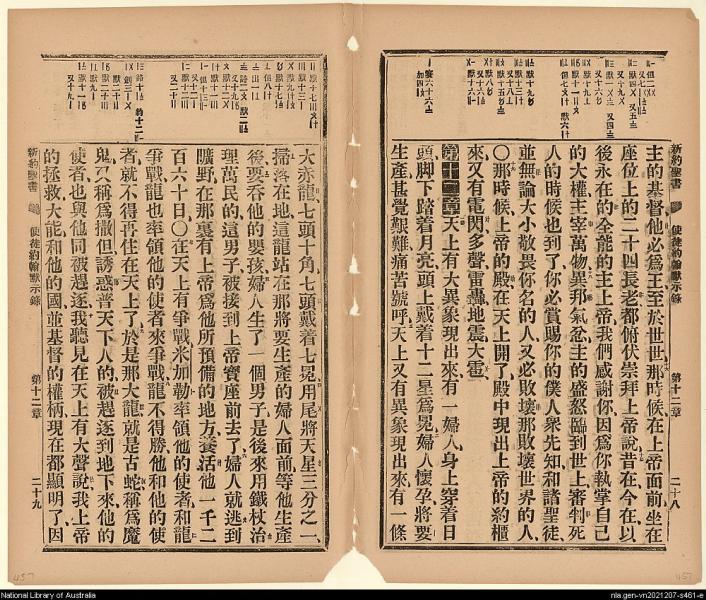 新約聖書 使徒約翰默示錄 第十二章 二十八
主的基督他必爲王至於世世那時候在上帝面前坐在
座位上的二十四長老都俯伏崇拜上帝說昔在今在以
後永在的全能的主上帝我們感謝你因爲你執掌自己
的大權主宰萬物異邦氣忿主的盛怒臨到世上審判死
人的時候也到了你必賞賜你的僕人衆先知和諸聖徒
並無論大小敬畏你名的人又必敗壞那敗壞世界的人
〇那時候上帝的殿在天上開了殿中現出上帝的約櫃
來又有電閃多聲雷轟地震大雹
第十二章 天上有大異象現出來有一婦人身上穿着日
頭脚下踏着月亮頭上戴着十二星爲冕婦人懷孕將要
生產甚覺艱難痛苦號呼天上又有異象現出來有一條
大赤龍七頭十角七頭戴着七冕用尾將天星三分之一
掃落在地這龍站在那將要生產的婦人面前等他生產
後要吞他的嬰孩婦人生了一個男子是後來用鐵杖治
理萬民的這男子被接到上帝寶座前去了婦人就逃到
曠野在那裏有上帝爲他所預備的地方養活他一千二
百六十日〇在天上有爭戰米加勒率領他的使者和龍
爭戰龍也率領他的使者來爭戰龍不得勝他和他的使
者就不得再住在天上了於是那大龍就是古蛇稱爲魔
鬼又稱爲撒但誘惑普天下人的被趕逐到地下來他的
使者也與他同被趕逐我聽見在天上有大聲說我上帝
的拯救大能和他的國並基督的權柄現在都顯明了因
新約聖書 使徒約翰默示錄 第十二章 二十九
457
457
National Library of Australia
nla.gen-vn2021207-s461-e